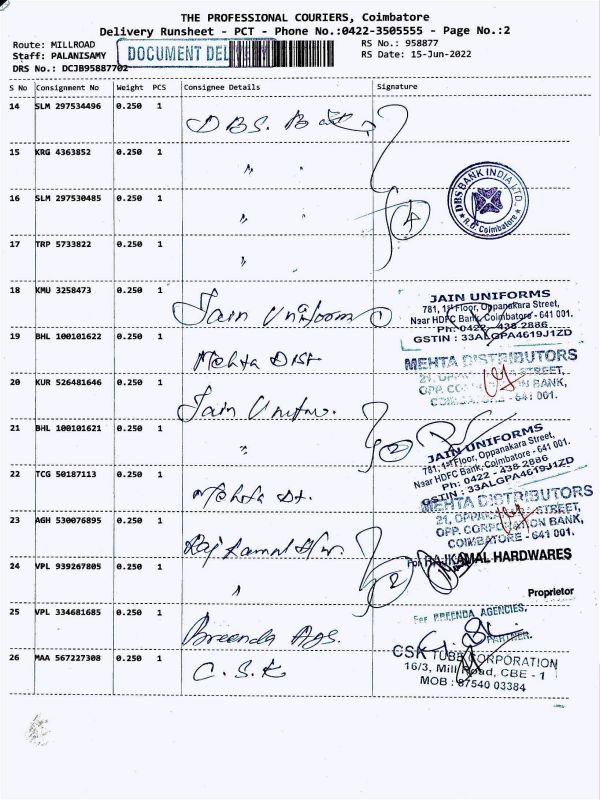 THE PROFESSIONAL COURIERS, Coimbatore
Delivery Runsheet - PCT - Phone No.:0422-3505555 - Page No.:2
Route: MILLROAD
RS No.: 958877
Staff: PALANISAMY
DOCUMENT DEL
RS Date: 15-Jun-2022
DRS No.: DCJB95887702
S No Consignment No Weight PCS Consignee Details Signature
14 SLM 297534496 0.250 1 DBS. Bank
15 KRG 4363852 0.250 1 "  "
16 SLM 297530485 0.250 1 "  "
4
DBS BANK INDIA LTD.,
R.O. Coimbatore
17 TRP 5733822 0.250 1 "
18 KMU 3258473 0.250 1 Jain Uniform 1
JAIN UNIFORMS
781, 1st Floor, Oppanakara Street,
Near HDFC Bank, Coimbatore - 641 001.
Ph: 0422 - 438 2886
GSTIN : 33ALGPA4619J1ZD
19 BHL 100101622 0.250 1 Mehta Dist
MEHTA DISTRIBUTORS
21, STREET,
OPP. BANK,
641 001.
20 KUR 526481646 0.250 1 Jain Unifm.
21 BHL 100101621 0.250 1 "
2
JAIN UNIFORMS
781, 1st Floor, Oppanakara Street,
Near HDFC Bank, Coimbatore - 641 001.
Ph: 0422 - 438 2886
GSTIN : 33ALGPA4619J1ZD
22 TCG 50187113 0.250 1 Mehta Dt.
MEHTA DISTRIBUTORS
21, STREET,
OPP. CORPORATION BANK,
COIMBATORE - 641 001.
23 AGH 530076895 0.250 1 Raj Kamal H/w.
24 VPL 939267805 0.250 1 "
2
For RAJKAMAL HARDWARES
Proprietor
25 VPL 334681685 0.250 1 Breenda Ags.
For BREENDA AGENCIES,
PARTNER.
26 MAA 567227308 0.250 1 C.S.K
CSK TUBE CORPORATION
16/3, Mill Road, CBE - 1
MOB : 87540 03384